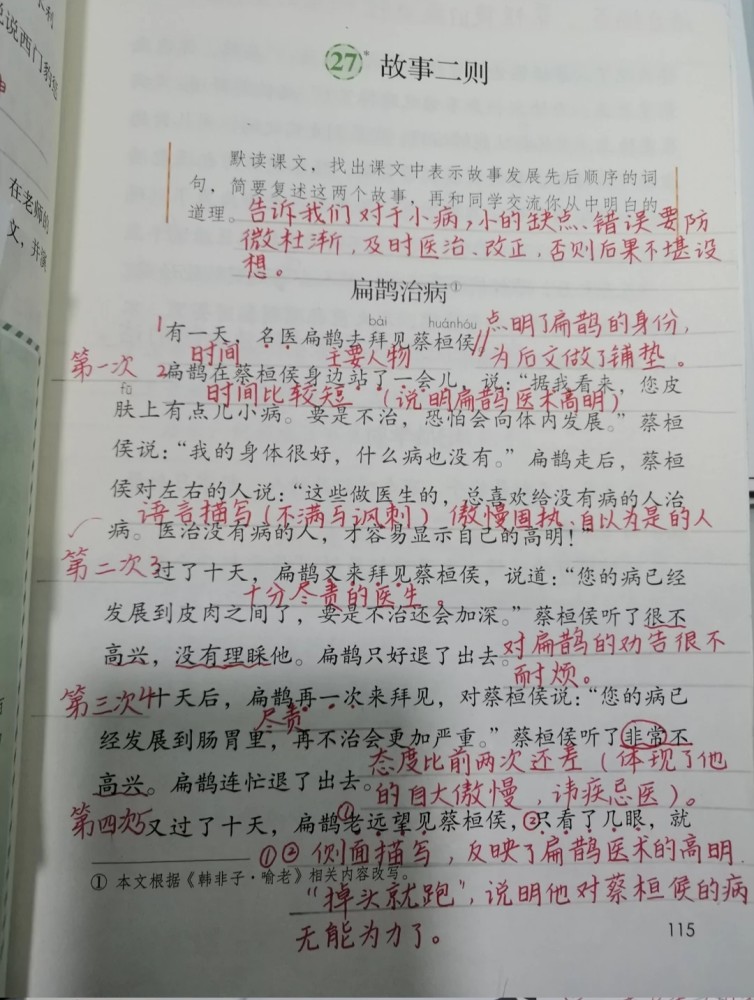 27* 故事二则
默读课文，找出课文中表示故事发展先后顺序的词
句，简要复述这两个故事，再和同学交流你从中明白的
道理。
告诉我们对于小病，小的缺点、错误要防
微杜渐，及时医治、改正，否则后果不堪设
想。
扁鹊治病①
bài huánhóu
1有一天，名医扁鹊去拜见蔡桓侯//
点明了扁鹊的身份，
时间 主要人物 为后文做了铺垫。
第一次 2扁鹊在蔡桓侯身边站了一会儿，说：“据我看来，您皮
fū 时间比较短 （说明扁鹊医术高明）
肤上有点儿小病。要是不治，恐怕会向体内发展。”蔡桓
侯说：“我的身体很好，什么病也没有。”扁鹊走后，蔡桓
侯对左右的人说：“这些做医生的，总喜欢给没有病的人治
语言描写（不满与讽刺）傲慢固执、自以为是的人
病。医治没有病的人，才容易显示自己的高明！”
第二次 3过了十天，扁鹊又来拜见蔡桓侯，说道：“您的病已经
十分尽责的医生。
发展到皮肉之间了，要是不治还会加深。”蔡桓侯听了很不
高兴，没有理睬他。扁鹊只好退了出去。
对扁鹊的劝告很不
耐烦。
第三次 4十天后，扁鹊再一次来拜见，对蔡桓侯说：“您的病已
尽责
经发展到肠胃里，再不治会更加严重。”蔡桓侯听了非常不
高兴。扁鹊连忙退了出去。
态度比前两次还差（体现了他
的自大傲慢，讳疾忌医）。
第四次 5又过了十天，扁鹊①老远望见蔡桓侯，②只看了几眼，就
①②侧面描写，反映了扁鹊医术的高明.
① 本文根据《韩非子·喻老》相关内容改写。
“掉头就跑”，说明他对蔡桓侯的病
无能为力了。
115
说西门豹
在老师的
文，并演